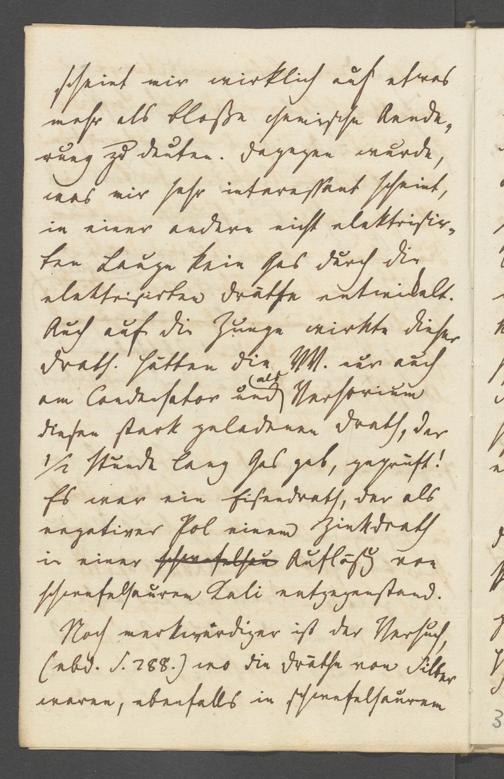 scheint mir wirklich auf etwas
mehr als bloße chemische Aende-
rung zu deuten. Dagegen wurde,
was mir sehr interessant scheint,
in einer andern nicht elektrisir-
ten Lauge kein Gas durch die
elektrisirten Dräthe entwickelt.
Auch auf die Zunge wirkte dieser
Drath. Hätten die VV. nur auch
am Condensator und (als) Versorium
diesen stark geladenen Drath, der
1/2 Stunde lang Gas gab, geprüft!
Es war ein Eisendrath, der als
negativer Pol einem Zinkdrath
in einer schwefelsau Auflösg von
schwefelsaurem Kali entgegenstand.
Noch merkwürdiger ist der Versuch,
(ebd. S. 288.) wo die Dräthe von Silber
waren, ebenfalls in schwefelsaurem